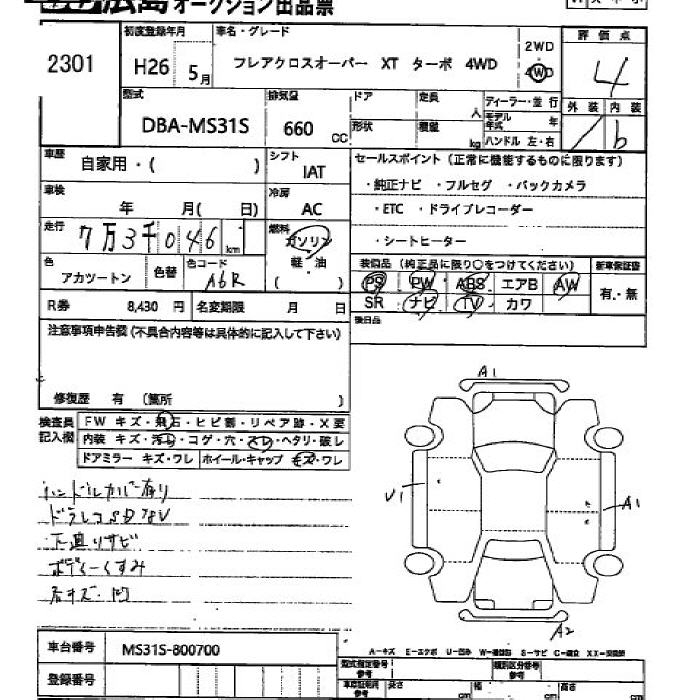 広島オークション出品票
2301
初度登録年月 車名・グレード
H26 5月 フレアクロスオーバー XT ターボ 4WD
2WD
4WD
評価点
4
外装 内装
b
型式 排気量 ドア 定員 人 ディーラー・並行
DBA-MS31S 660 CC 形状 積量 kg モデル年式 年
ハンドル 左・右
車歴 自家用・( ) シフト IAT
セールスポイント(正常に機能するものに限ります)
・純正ナビ ・フルセグ ・バックカメラ
・ETC ・ドライブレコーダー
・シートヒーター
車検 年 月( 日) 冷房 AC
走行 7万3千046km 燃料 ガソリン
軽・油
( )
色 アカツートン 色替 色コード A6R
装備品(純正品に限り○をつけてください) 新車保証書
PS PW ABS エアB AW 有・無
SR ナビ TV カワ
後日品
R券 8,430 円 名変期限 月 日
注意事項申告欄(不具合内容等は具体的に記入して下さい)
修復歴 有 (箇所 )
検査員記入欄
FW キズ・飛石・ヒビ割・リペア跡・X要
内装 キズ・汚れ・コゲ・穴・スレ・ヘタリ・破レ
ドアミラー キズ・ワレ ホイール・キャップ キズ・ワレ
ハンドルカバー有り
下廻りサビ
ボディーくすみ
A1
U1
A1
A2
車台番号 MS31S-800700
登録番号
A-キズ E-エクボ U-凹み W-補修跡 S-サビ C-腐食 XX-交換済
型式指定番号 参考 類別区分番号 参考
長さ cm 幅 cm 高さ cm